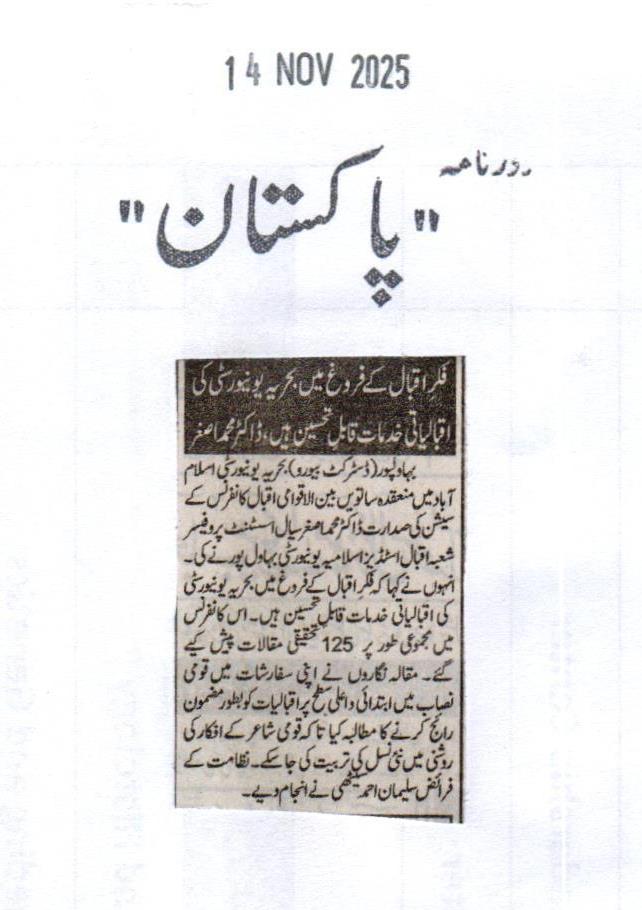 14 NOV 2025
روزنامہ
"پاکستان"
فکرِ اقبال کے فروغ میں بحریہ یونیورسٹی کی
اقبالیاتی خدمات قابلِ تحسین ہیں، ڈاکٹر محمد اصغر
بہاولپور (ڈسٹرکٹ بیورو) بحریہ یونیورسٹی اسلام
آباد میں منعقدہ ساتویں بین الاقوامی اقبال کانفرنس کے
سیشن کی صدارت ڈاکٹر محمد اصغر سیال اسٹنٹ پروفیسر
شعبہ اقبال اسٹڈیز اسلامیہ یونیورسٹی بہاول پور نے کی۔
انہوں نے کہا کہ فکرِ اقبال کے فروغ میں بحریہ یونیورسٹی
کی اقبالیاتی خدمات قابلِ تحسین ہیں۔ اس کانفرنس
میں مجموعی طور پر 125 تحقیقی مقالات پیش کیے
گئے۔ مقالہ نگاروں نے اپنی سفارشات میں قومی
نصاب میں ابتدائی و اعلیٰ سطح پر اقبالیات کو بطور مضمون
رائج کرنے کا مطالبہ کیا تاکہ قومی شاعر کے افکار کی
روشنی میں نئی نسل کی تربیت کی جا سکے۔ نظامت کے
فرائض سلیمان احمد سیٹھی نے انجام دیے۔